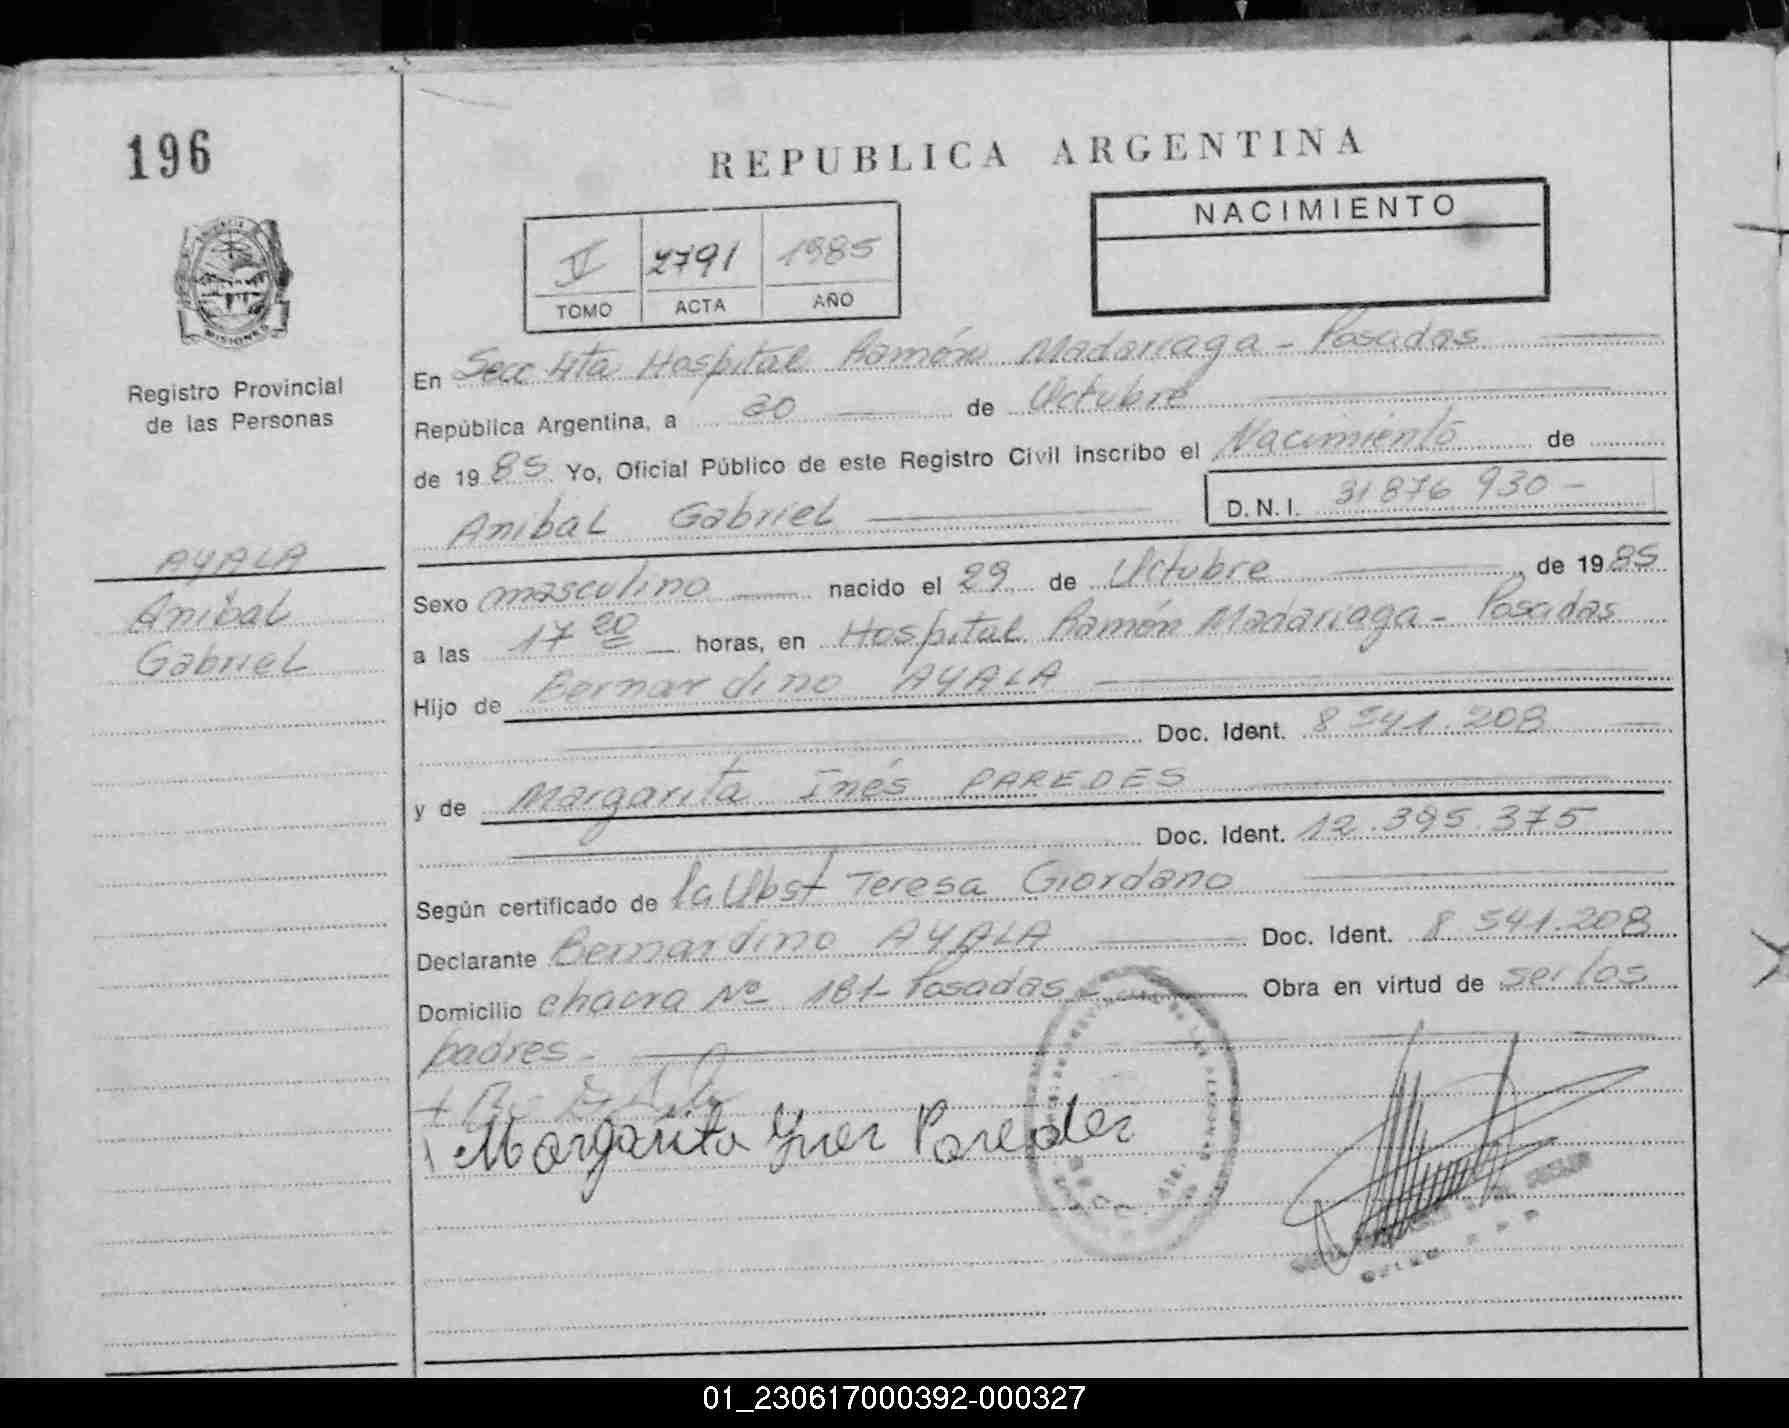 196
REPUBLICA ARGENTINA
NACIMIENTO
2791 1985
TOMO ACTA AÑO
PROVINCIA DE MISIONES
Registro Provincial
de las Personas
En Secc 4ta Hospital Ramón Madariaga - Posadas
República Argentina, a 30 de Octubre
de 1985 Yo, Oficial Público de este Registro Civil inscribo el Nacimiento de
Anibal Gabriel D.N.I. 31876 930 -
AYALA
Anibal
Gabriel
Sexo masculino nacido el 29 de Octubre de 1985
a las 17 20 horas, en Hospital Ramón Madariaga - Posadas
Hijo de Bernardino AYALA
Doc. Ident. 8 541.208
y de Margarita Inés PAREDES
Doc. Ident. 12.395.375
Según certificado de la Obst Teresa Giordano
Declarante Bernardino AYALA Doc. Ident. 8 541.208
Domicilio chacra Nº 181- Posadas - Obra en virtud de ser los
padres -
Margarita Ines Paredes
01_230617000392-000327